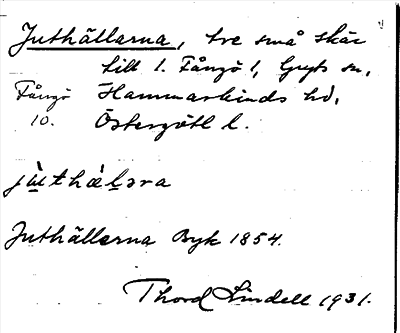 Juthällarna, tre små skär
till 1. Fångö 1, Gryts sn,
Fångö Hammarkinds hd,
10. Östergötl l.
jùthæ̀ḷəra
Juthällerna Byk 1854.
Thord Lindell 1931.